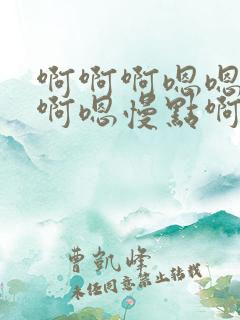 啊啊啊嗯嗯
啊嗯慢點啊
曹凱峰
未经同意禁止转载